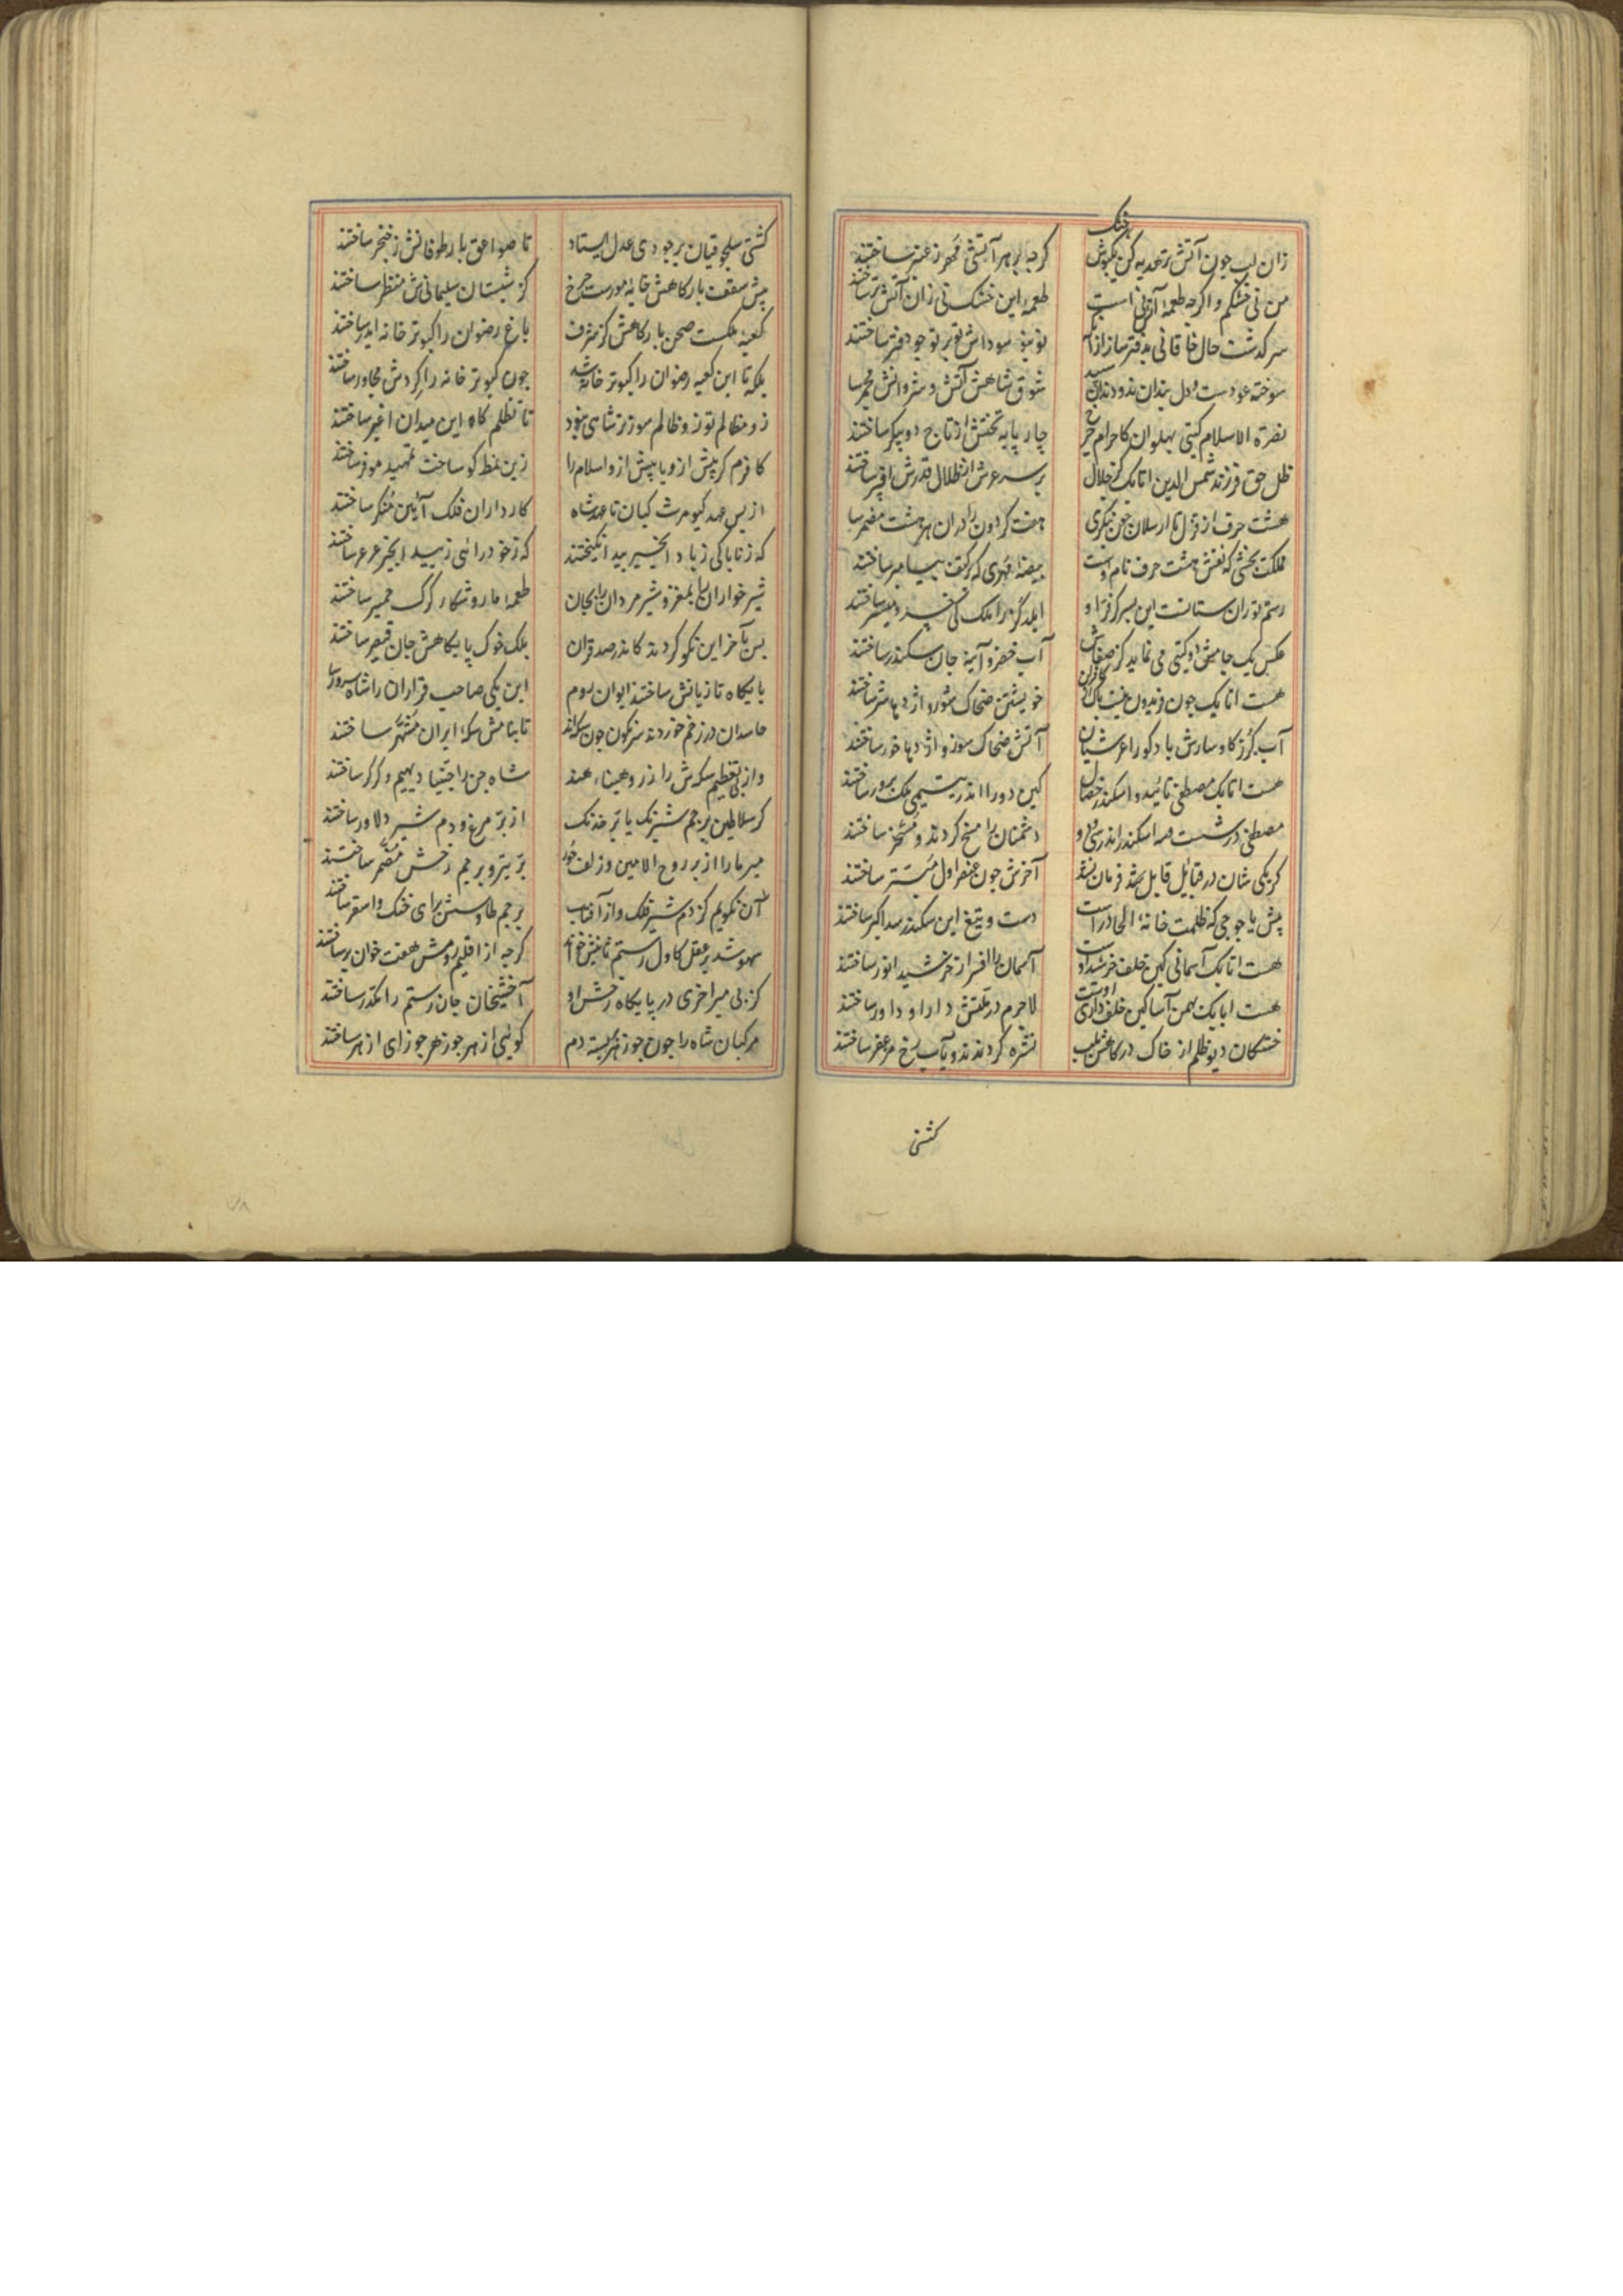 خشک
زان لب چون آتش تر هدیه کن یک بوس
گرچه بر هر آتشی مهر ز عنبر ساختند
من نی خشکم و اگرچه طعمهٔ آتش نی است
طعمهٔ این خشک نی زان آتش تر ساختند
سرگذشت حال خاقانی بدفتر ساز از آنک
نو بنو سوداش تو بر تو چو دفتر ساختند
سوخته عودست و دل بندان بدو دندان سپید
شوق شاهش آتش و شروانش مجمر ساختند
نصرة الاسلام گیتی پهلوان کاجرام چرخ
چار پایه تختش از تاج دو پیکر ساختند
ظل حق فرزند شمس الدین اتابک کز جلال
بر سر عرش از ظلال قدرش افسر ساختند
هشت حرف از قزل تا ارسلان چون بنگری
هفت گردون را در آن هر هشت مضمر ساختند
مملکت بخشی که نقش هشت حرف نام اوست
بیضهٔ مهری که بر کتف پیامبر ساختند
رستم توران ستانست این پسر کز فر او
ایلدگز را ملک کی خسرو میسر ساختند
عکس یک جامش دو گیتی می نماید کز صفاش
آب خضر و آینهٔ جان سکندر ساختند
هست اتابک چون فریدون نیست باک از کافران
خویشتن ضحاک شور و اژدها شر ساختند
آب گرز گاو سارش باد کو را عرشیان
آتش ضحاک سوز و اژدها خور ساختند
هست اتابک مصطفی تائید و اسکندر خصال
کین دو را اندر یتیمی ملک پرور ساختند
دشمنان را مسخ کردند و مسخر ساختند
گر یکی شان در قبایل قابل فرمان نشد
آخرش چون عنصر اول مستر ساختند
پیش یا جوجی که ظلمت خانهٔ الحاد راست
دست و تیغ این سکندر سد اکبر ساختند
هست اتابک آسمانی کین خلف خورشید اوست
آسمان را افسر از خورشید انور ساختند
هست اتابک بهمن آسا کین خلف دارای اوست
لاجرم در ملکتش دارا و داور ساختند
خستگان دیو ظلم از خاک درگاهش بلب
نشره کردند و بآب رخ مزعفر ساختند
کشتی
کشتی سلجوقیان بر جودی عدل ایستاد
تا صواعق بار طوفانش ز خنجر ساختند
پیش سقف بارگاهش خانهٔ مورست چرخ
کز شبستان سلیمانی ش منظر ساختند
کعبهٔ ملکست صحن بارگاهش کز شرف
باغ رضوان را کبوتر خانه ایدر ساختند
بلکه تا این کعبه رضوان را کبوتر خانه شد
چون کبوتر خانه را گردش مجاور ساختند
تا تظلم گاه این میدان اغبر ساختند
کافرم گر پیش ازو یا بیش ازو اسلام را
زین نمط کو ساخت تمهید موفر ساختند
از پس عهد کیومرث کیان تا عهد شاه
کارداران فلک آیین منکر ساختند
گه ز ناپاکی ز باد انجیر بید انگیختند
گه ز خودرائی ز بید انجیر عرعر ساختند
شیرخواران را بمغز و شیر مردان را بجان
طعمهٔ مار و شکار گرگ حمیر ساختند
پس بآخر این نکو کردند کاندر صد قران
این یکی صاحب قران را شاه سرور ساختند
پایگاه تازیانش ساختند ایوان روم
بلک خوک پایگاهش جان قیصر ساختند
حاسدان در زخم خوردند سرنگون چون سکه اند
تا بنامش سکهٔ ایران مشهر ساختند
واز پی تعظیم سکه ش را ز روهیناء هند
شاه جن را جنیان دیهیم و گرگر ساختند
گر سلاطین پرچم شبرنگ یا پر خدنگ
از پر مرغ و دم شیر دلاور ساختند
میر ما را از پر روح الامین وز زلف حور
پر تیر و پرچم رخش مضمر ساختند
آن نگویم کز دم شیر فلک واز آفتاب
پرچم طاوسش برای خنگ و اشقر ساختند
سهو شد بر عقل کاول رستم ثانیش خواند
گرچه از اقلیم رومش هفت خوان بر ساختند
کز پی میر آخری در پایگاه رخش او
آخشیجان جان رستم را مکدر ساختند
مرکبان شاه را چون جوز هر بسته دم
گوئی از هر جوز هر جوزای ازهر ساختند
۷۸